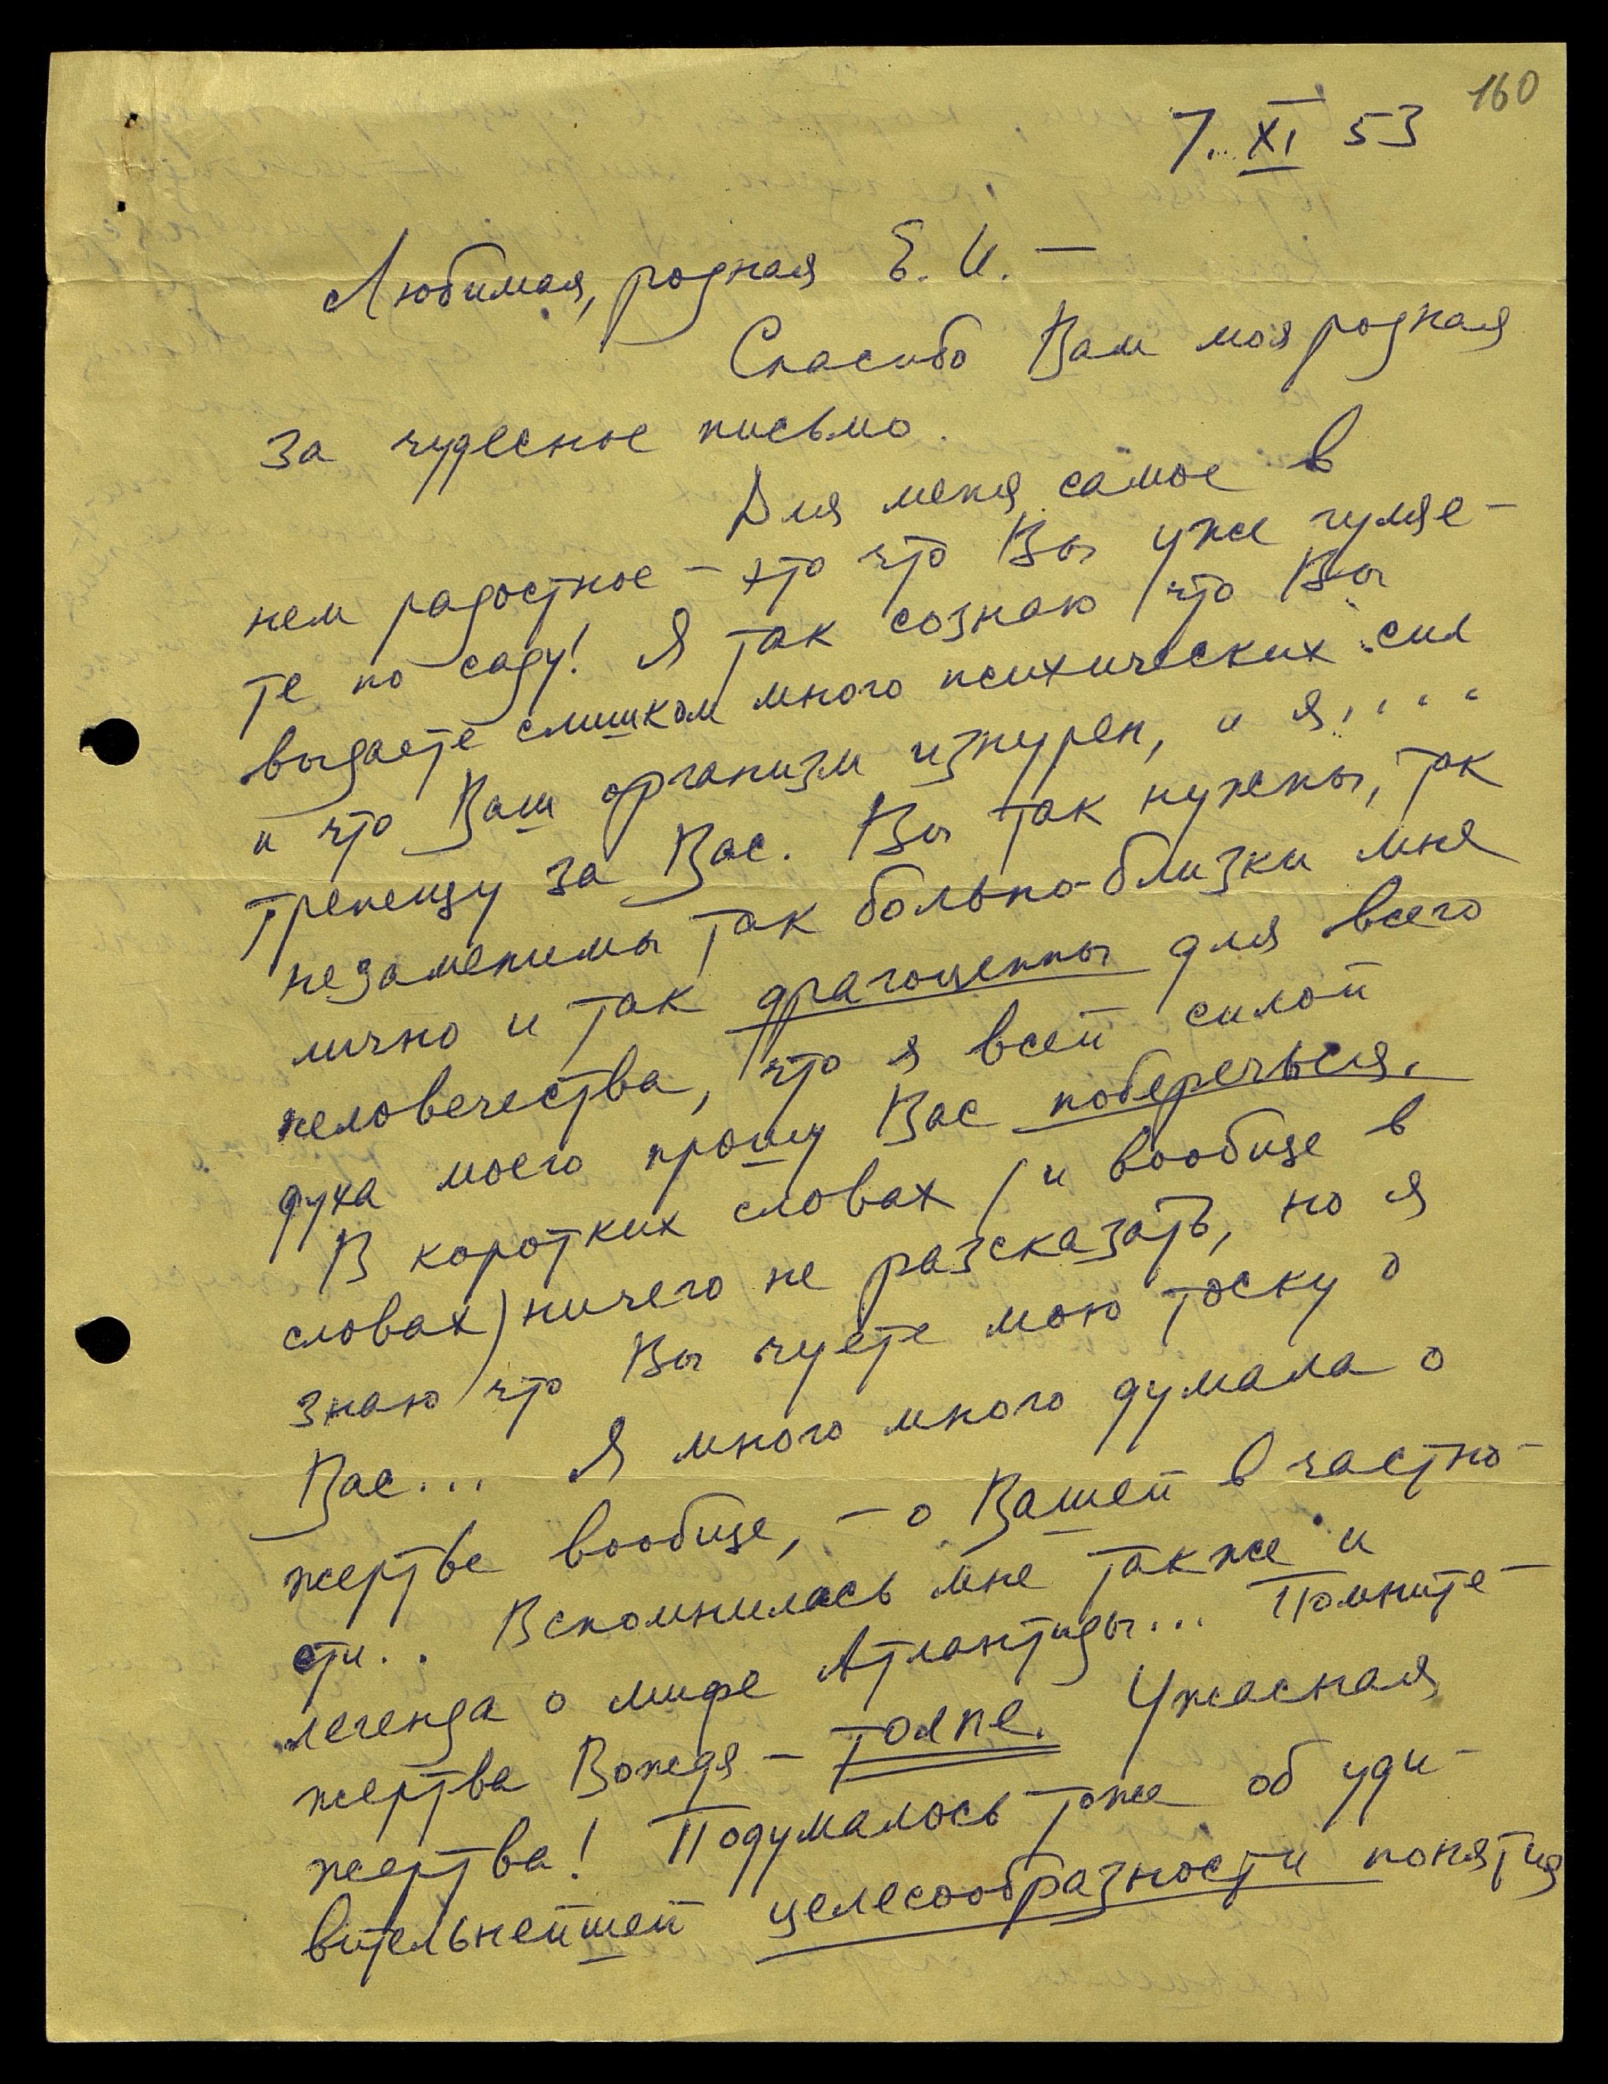 160
7. XI 53
Любимая, родная Е. И. —
Спасибо Вам моя родная
за чудесное письмо.
Для меня самое в
нем радостное — это что Вы уже гуляе-
те по саду! Я так сознаю что Вы
выдаете слишком много психических сил
и что Ваш организм изнурен, и я....
трепещу за Вас. Вы так нужны, так
незаменимы так больно-близки мне
лично и так драгоценны для всего
человечества, что я всей силой
духа моего прошу Вас поберечься.
В коротких словах (и вообще в
словах) ничего не разсказать, но я
знаю что Вы чуете мою тоску о
Вас... Я много много думала о
жертве вообще, — о Вашей в частно-
сти.. Вспомнилась мне также и
легенда о мифе Атлантиды... Помните —
жертва Вождя — толпе. Ужасная
жертва! Подумалось тоже об уди-
вительнейшей целесообразности понятия